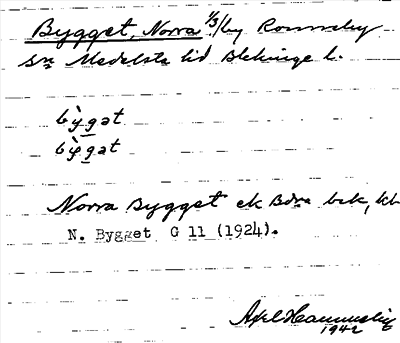 Bygget, Norra 1/3/by Ronneby
sn Medelsta hd Blekinge l.
bỳgət
bỳgət
Norra Bygget ek Bdra bek, kb
N. Bygget G 11 (1924).
Axel Hammelin
1942